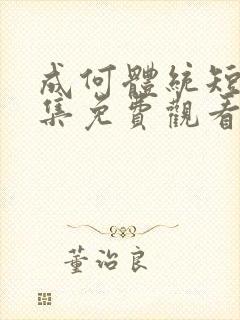 成何體統短
集免費觀看
董治良